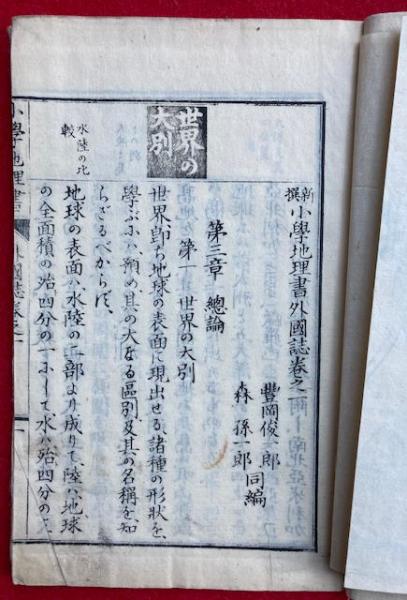 新撰小學地理書外國誌卷之一
豐岡俊一郎
森孫一郎 同編
第三章 總論
第一 世界の大別
世界の大別
世界即ち地球の表面に現出せる、諸種の形狀を、
學ぶにハ、預め其の大なる區別及其の名稱を、知
らざるべからず、
水陸の比較
地球の表面ハ、水陸の二部より成りて、陸ハ、地球
の全面積の殆四分の一にして、水ハ殆四分の三
小學地理書
外國誌卷之一